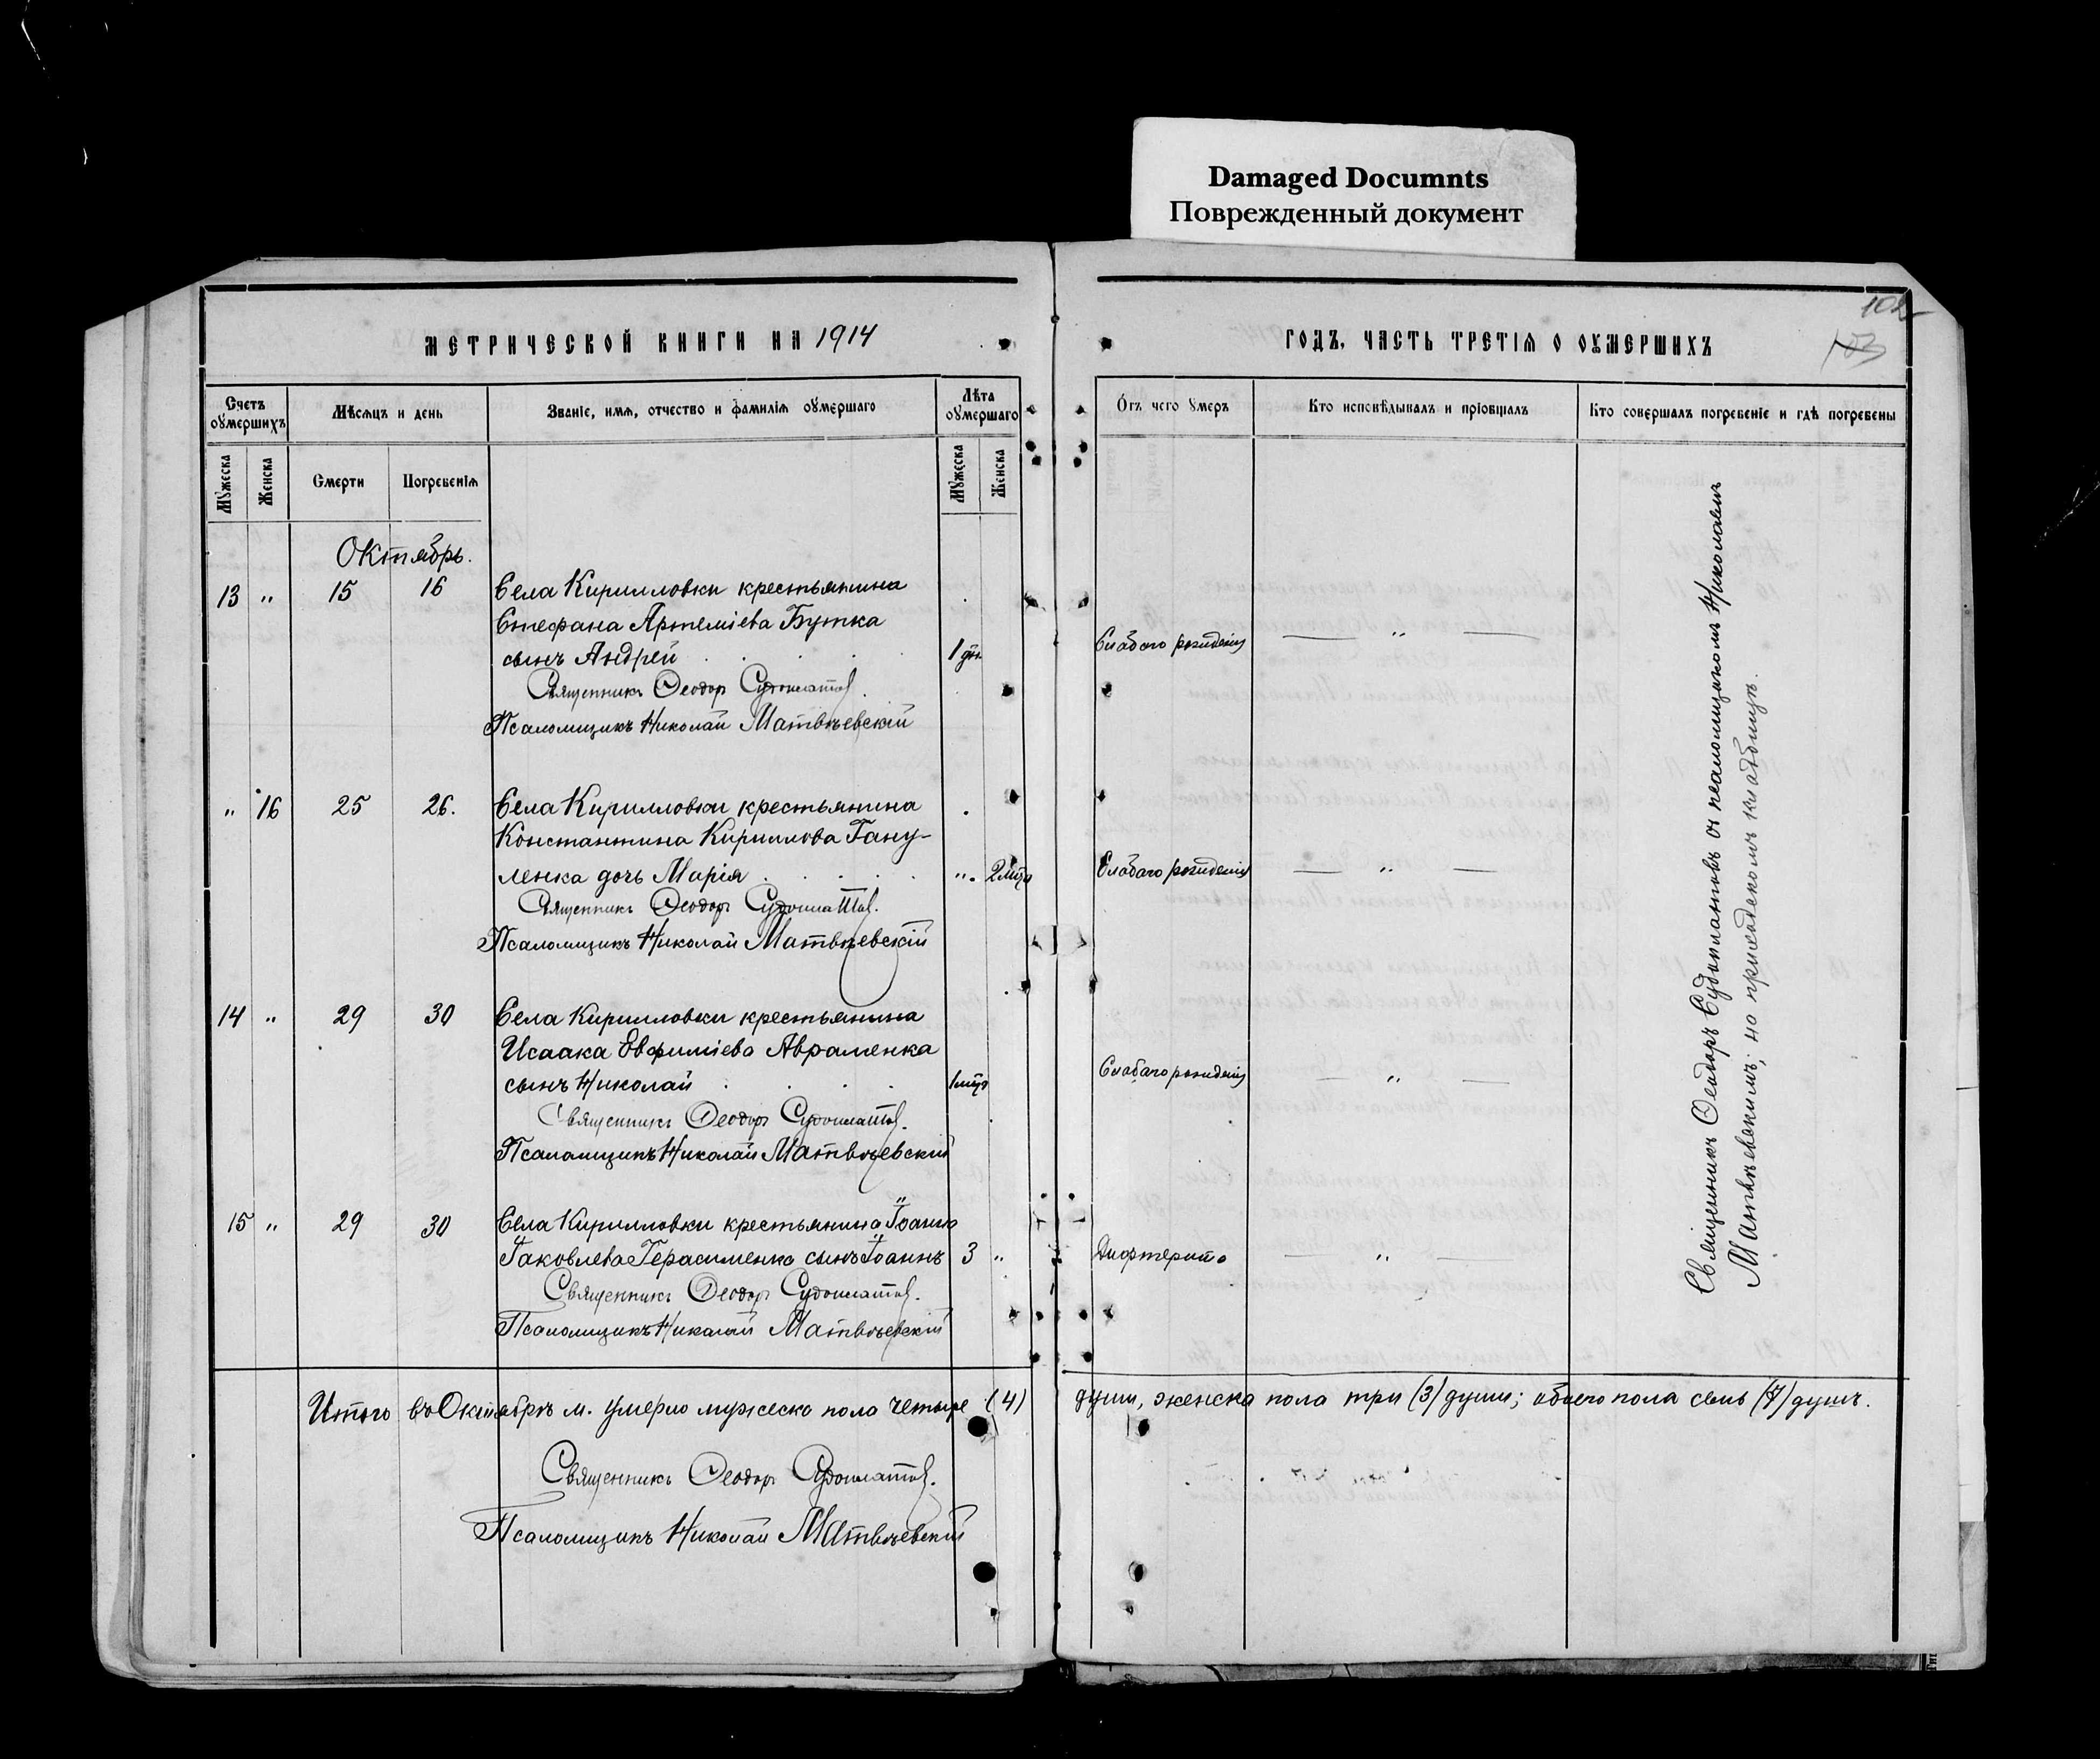 Damaged Documnts
Поврежденный документ
102
103
МЕТРИЧЕСКОЙ КНИГИ НА 1914
ГОДЪ, ЧАСТЬ ТРЕТІЯ О ОУМЕРШИХЪ
Счетъ оумершихъ
Мѣсяцъ и день
Званіе, имя, отчество и фамилія оумершаго
Лѣта оумершаго
Отъ чего умеръ
Кто исповѣдывалъ и пріобщалъ
Кто совершалъ погребеніе и гдѣ погребены
Мужеска
Женска
Смерти
Погребенія
Мужеска
Женска
Октябрь.
13 " 15 16 Села Кирилловки крестьянина
Стефана Артеміева Бутка
сынъ Андрей 1 дн. Слабаго рожденія — " —
Священникъ Ѳеодоръ Судоплатов.
Псаломщикъ Николай Матвѣевскій
" 16 25 26. Села Кирилловки крестьянина
Константина Кириллова Гану-
ленка дочь Марія ". 2 мѣс Слабаго рожденія — " —
Священникъ Ѳеодоръ Судоплатов.
Псаломщикъ Николай Матвѣевскій
14 " 29 30 Села Кирилловки крестьянина
Исаака Евфиміева Авраменка
сынъ Николай 1 мѣс Слабаго рожденія — " —
Священникъ Ѳеодоръ Судоплатов.
Псаломщикъ Николай Матвѣевскій
15 " 29 30 Села Кирилловки крестьянина Іоанна
Іаковлева Герасименка сынъ Іоаннъ 3 " Дифтерита — " —
Священникъ Ѳеодоръ Судоплатов.
Псаломщикъ Николай Матвѣевскій
Священникъ Ѳеодоръ Судоплатовъ съ псаломщикомъ Николаемъ
Матвѣевскимъ; на приходскомъ кладбищѣ.
Итого въ Октябрѣ м. умерло мужеска пола четыре (4) души, женска пола три (3) души; обоего пола семь (7) душъ.
Священникъ Ѳеодоръ Судоплатов.
Псаломщикъ Николай Матвѣевскій